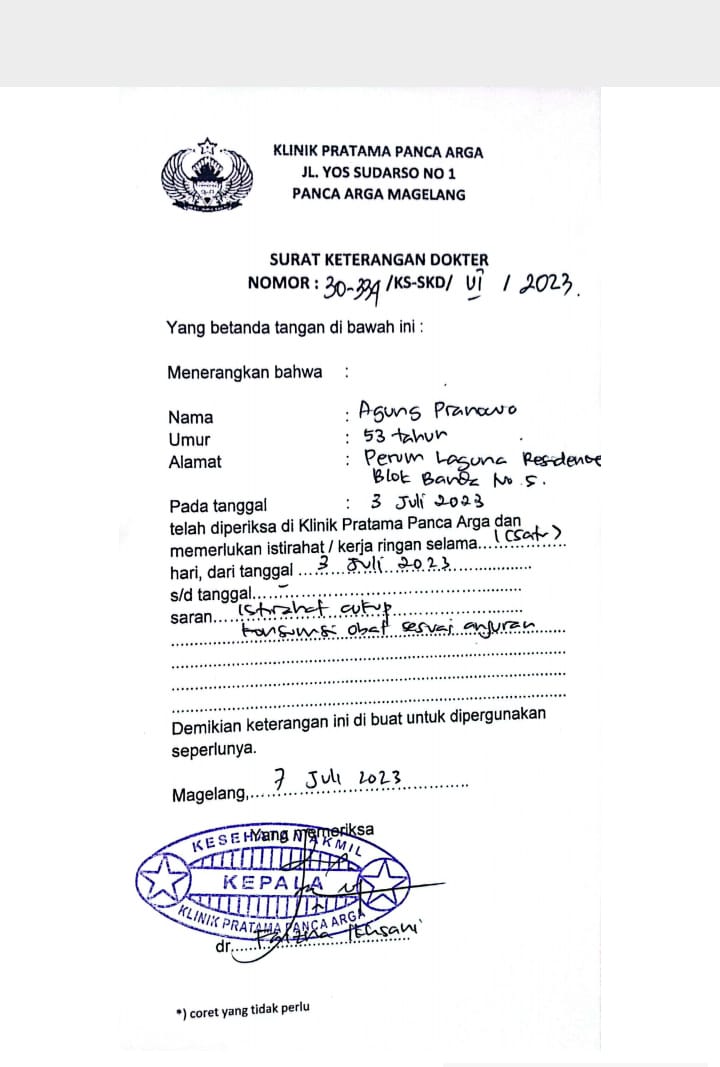 KLINIK PRATAMA PANCA ARGA
JL. YOS SUDARSO NO 1
PANCA ARGA MAGELANG
SURAT KETERANGAN DOKTER
NOMOR : 30-334 /KS-SKD/ VI / 2023.
Yang betanda tangan di bawah ini :
Menerangkan bahwa :
Nama : Agung Pranowo
Umur : 53 tahun
Alamat : Perum Laguna Residence
Blok No. 5.
Pada tanggal : 3 Juli 2023
telah diperiksa di Klinik Pratama Panca Arga dan
memerlukan istirahat / kerja ringan selama.... 1 (Satu)
hari, dari tanggal ... 3 Juli 2023
s/d tanggal... -
saran... Istirahat cukup
konsumsi obat sesuai anjuran
Demikian keterangan ini di buat untuk dipergunakan
seperlunya.
Magelang, 7 Juli 2023
Yang memeriksa
KESEH AKMIL
KEPALA
KLINIK PRATAMA PANCA ARGA
dr. Ikhsani
*) coret yang tidak perlu